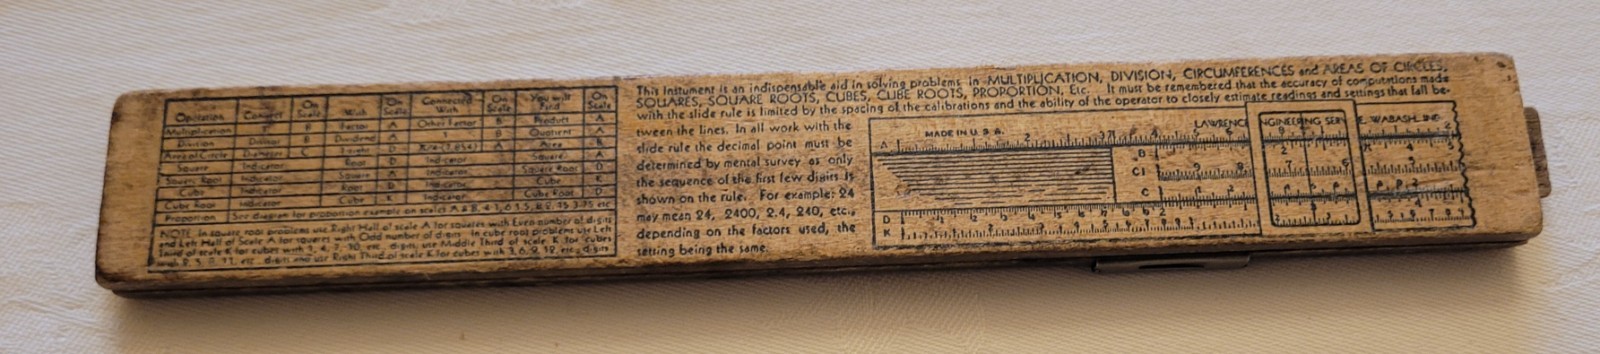 Operation Connect On Scale With On Scale Connected With On Scale You will Find On Scale
Multiplication 1 B Factor A Other Factor B Product A
Division Divisor B Dividend A 1 B Quotient A
Area of Circle Diameter C 1 right D A Area B
Square Indicator Root D Indicator Square A
Square Root Indicator Square A Indicator Square Root D
Cube Indicator Root D Indicator Cube K
Cube Root Indicator Cube K Indicator Cube Root D
Proportion See diagram for proportion example on scales A & B
NOTE. In square root problems use Right Half of Scale A for squares with Even number of digits
and Left Half of Scale A for squares with Odd number of digits. In cube root problems use Left
Third of scale K for cubes with 1, 4, 7, 10, etc., digits, use Middle Third of scale K for cubes
with 2, 5, 8, 11, etc., digits and use Right Third of scale K for cubes with 3, 6, 9, 12, etc., digits
This Instument is an indispensable aid in solving problems in MULTIPLICATION, DIVISION, CIRCUMFERENCES and AREAS OF CIRCLES,
SQUARES, SQUARE ROOTS, CUBES, CUBE ROOTS, PROPORTION, Etc. It must be remembered that the accuracy of computations made
with the slide rule is limited by the spacing of the calibrations and the ability of the operator to closely estimate readings and settings that fall be-
tween the lines. In all work with the
slide rule the decimal point must be
determined by mental survey as only
the sequence of the first few digits is
shown on the rule. For example: 24
may mean 24, 2400, 2.4, 240, etc.,
depending on the factors used, the
setting being the same.
MADE IN U. S. A. LAWRENCE ENGINEERING SERV E, WABASH, IND.
A
B
CI
C
D
K